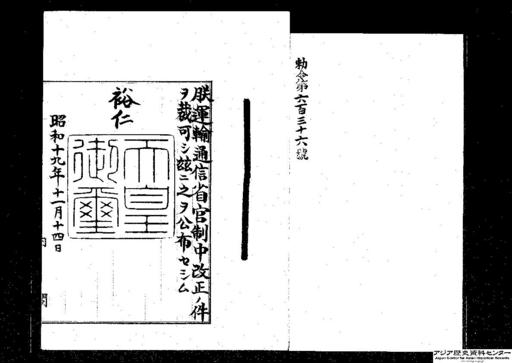 勅令第六百三十六號
朕運輸通信省官制中改正ノ件
ヲ裁可シ茲ニ之ヲ公布セシム
裕仁
天皇
御璽
昭和十九年十一月十四日
内
閣
アジア歴史資料センター
Japan Center for Asian Historical Records